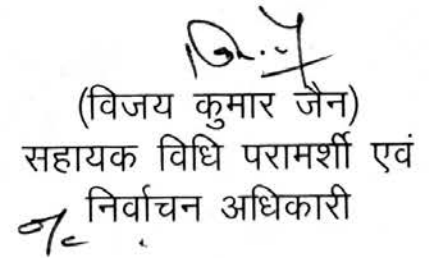 (विजय कुमार जैन)
सहायक विधि परामर्शी एवं
निर्वाचन अधिकारी